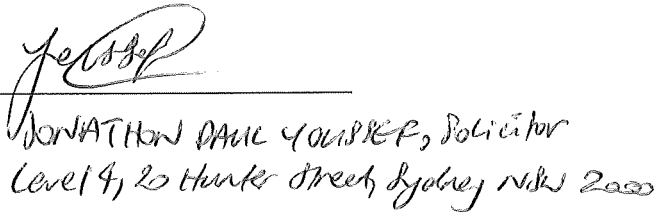 JONATHON PAUL YOUSSEF, Solicitor
Level 4, 20 Hunter Street, Sydney NSW 2000